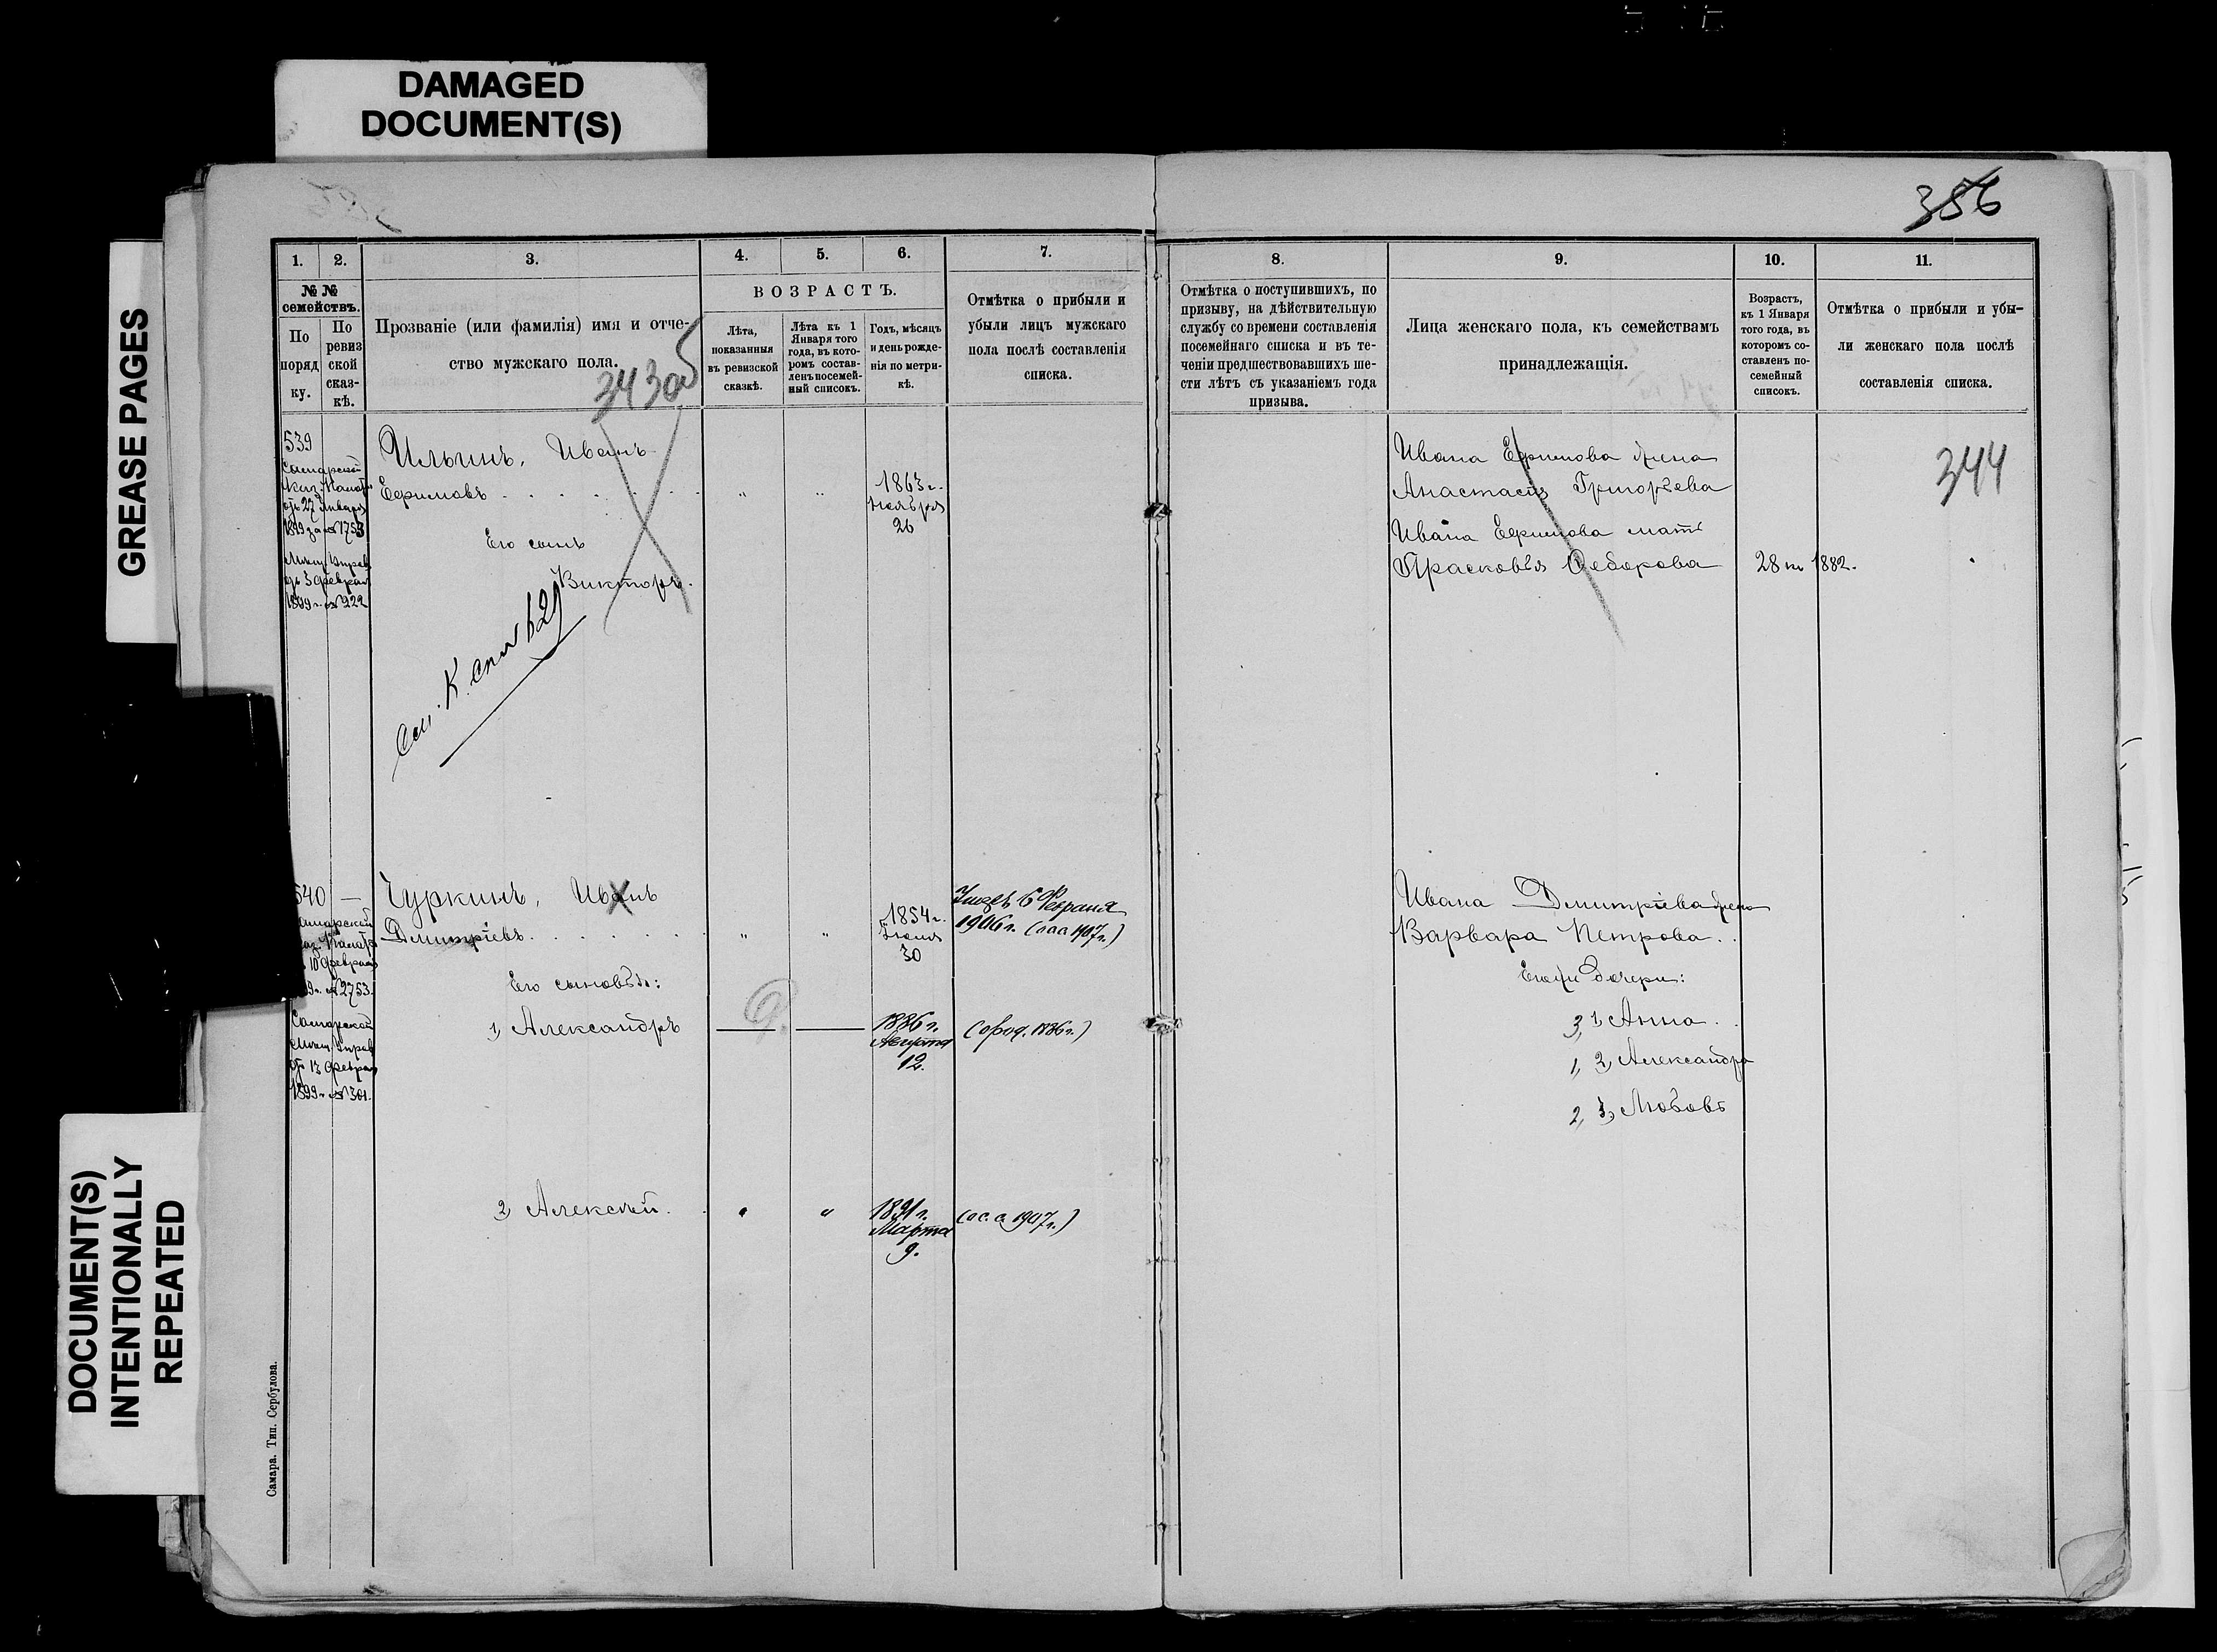 DAMAGED
DOCUMENT(S)
GREASE PAGES
DOCUMENT(S)
INTENTIONALLY
REPEATED
356
1.
2.
3.
4.
5.
6.
7.
№ №
семействъ.
По
поряд
ку.
По
ревиз
ской
сказ-
кѣ.
Прозваніе (или фамилія) имя и отче-
ство мужскаго пола.
343 об
ВОЗРАСТЪ.
Лѣта,
показанныя
въ ревизской
сказкѣ.
Лѣта къ 1
Января того
года, въ кото-
ромъ состав-
ленъ посемей-
ный списокъ.
Годъ, мѣсяцъ
и день рожде-
нія по метри-
кѣ.
Отмѣтка о прибыли и
убыли лицъ мужскаго
пола послѣ составленія
списка.
539
Самарской
Каз. Палаты
отъ 27 Января
1899 за № 1753
Мѣщ. Управ
отъ 3 Февраля
1899 г. № 222
Ильинъ, Иванъ
Ефимовъ . . . . . . . " "
1863 г.
Ноября
26
Его сынъ
Викторъ.
См. К. 629
540 —
Самарской
Каз. Палаты
10 Февраля
99 г. № 2753.
Самарской
Мѣщ. Управ
отъ 13 Февраля
1899 г. № 301.
Чуркинъ, Иванъ
Дмитріевъ . . . . . . " "
1854 г.
30
6 Февраля
1906 г. (1907 г.)
Его сыновья:
1, Александръ
1886 г.
Августа
12.
2, Алексѣй. " "
1891 г.
Марта
9.
(ос. а 1907 г.)
Самара. Тип. Сербулова.
8.
9.
10.
11.
Отмѣтка о поступившихъ, по
призыву, на дѣйствительную
службу со времени составленія
посемейнаго списка и въ те-
ченіи предшествовавшихъ ше-
сти лѣтъ съ указаніемъ года
призыва.
Лица женскаго пола, къ семействамъ
принадлежащія.
Возрастъ,
къ 1 Января
того года, въ
которомъ со-
ставленъ по-
семейный
списокъ.
Отмѣтка о прибыли и убы-
ли женскаго пола послѣ
составленія списка.
344
Ивана Ефимова жена
Анастасія Григорьева
Ивана Ефимова мать
Прасковья Федорова 28 1882.
Ивана Дмитріева жена
Варвара Петрова. .
дочери:
3, 1, Анна. .
1, 2, Александра
2, 3, Любовь